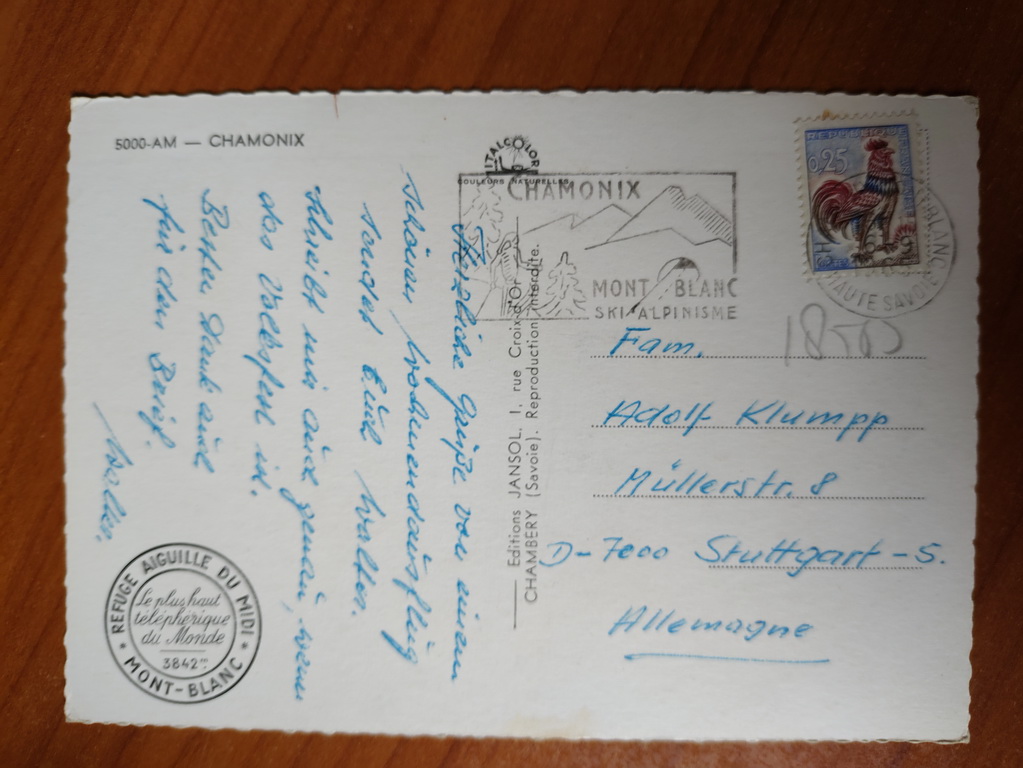 5000-AM — CHAMONIX
ITALCOLOR
COULEURS NATURELLES
CHAMONIX
MONT BLANC
SKI-ALPINISME
REPUBLIQUE
0,25
HAUTE SAVOIE
1850
Herzliche Grüße von einem
schönen Wochenendausflug
sendet Euch Walter.
Schreibt mir auch genau, wann
das Volksfest ist.
Besten Dank auch
für den Brief.
Walter.
Editions JANSOL, 1, rue Croix-d'Or
CHAMBERY (Savoie). Reproduction interdite.
Fam.
Adolf Klumpp
Müllerstr. 8
D-7000 Stuttgart-S.
Allemagne
REFUGE AIGUILLE DU MIDI
Le plus haut
téléphérique
du Monde
3842 m
MONT-BLANC